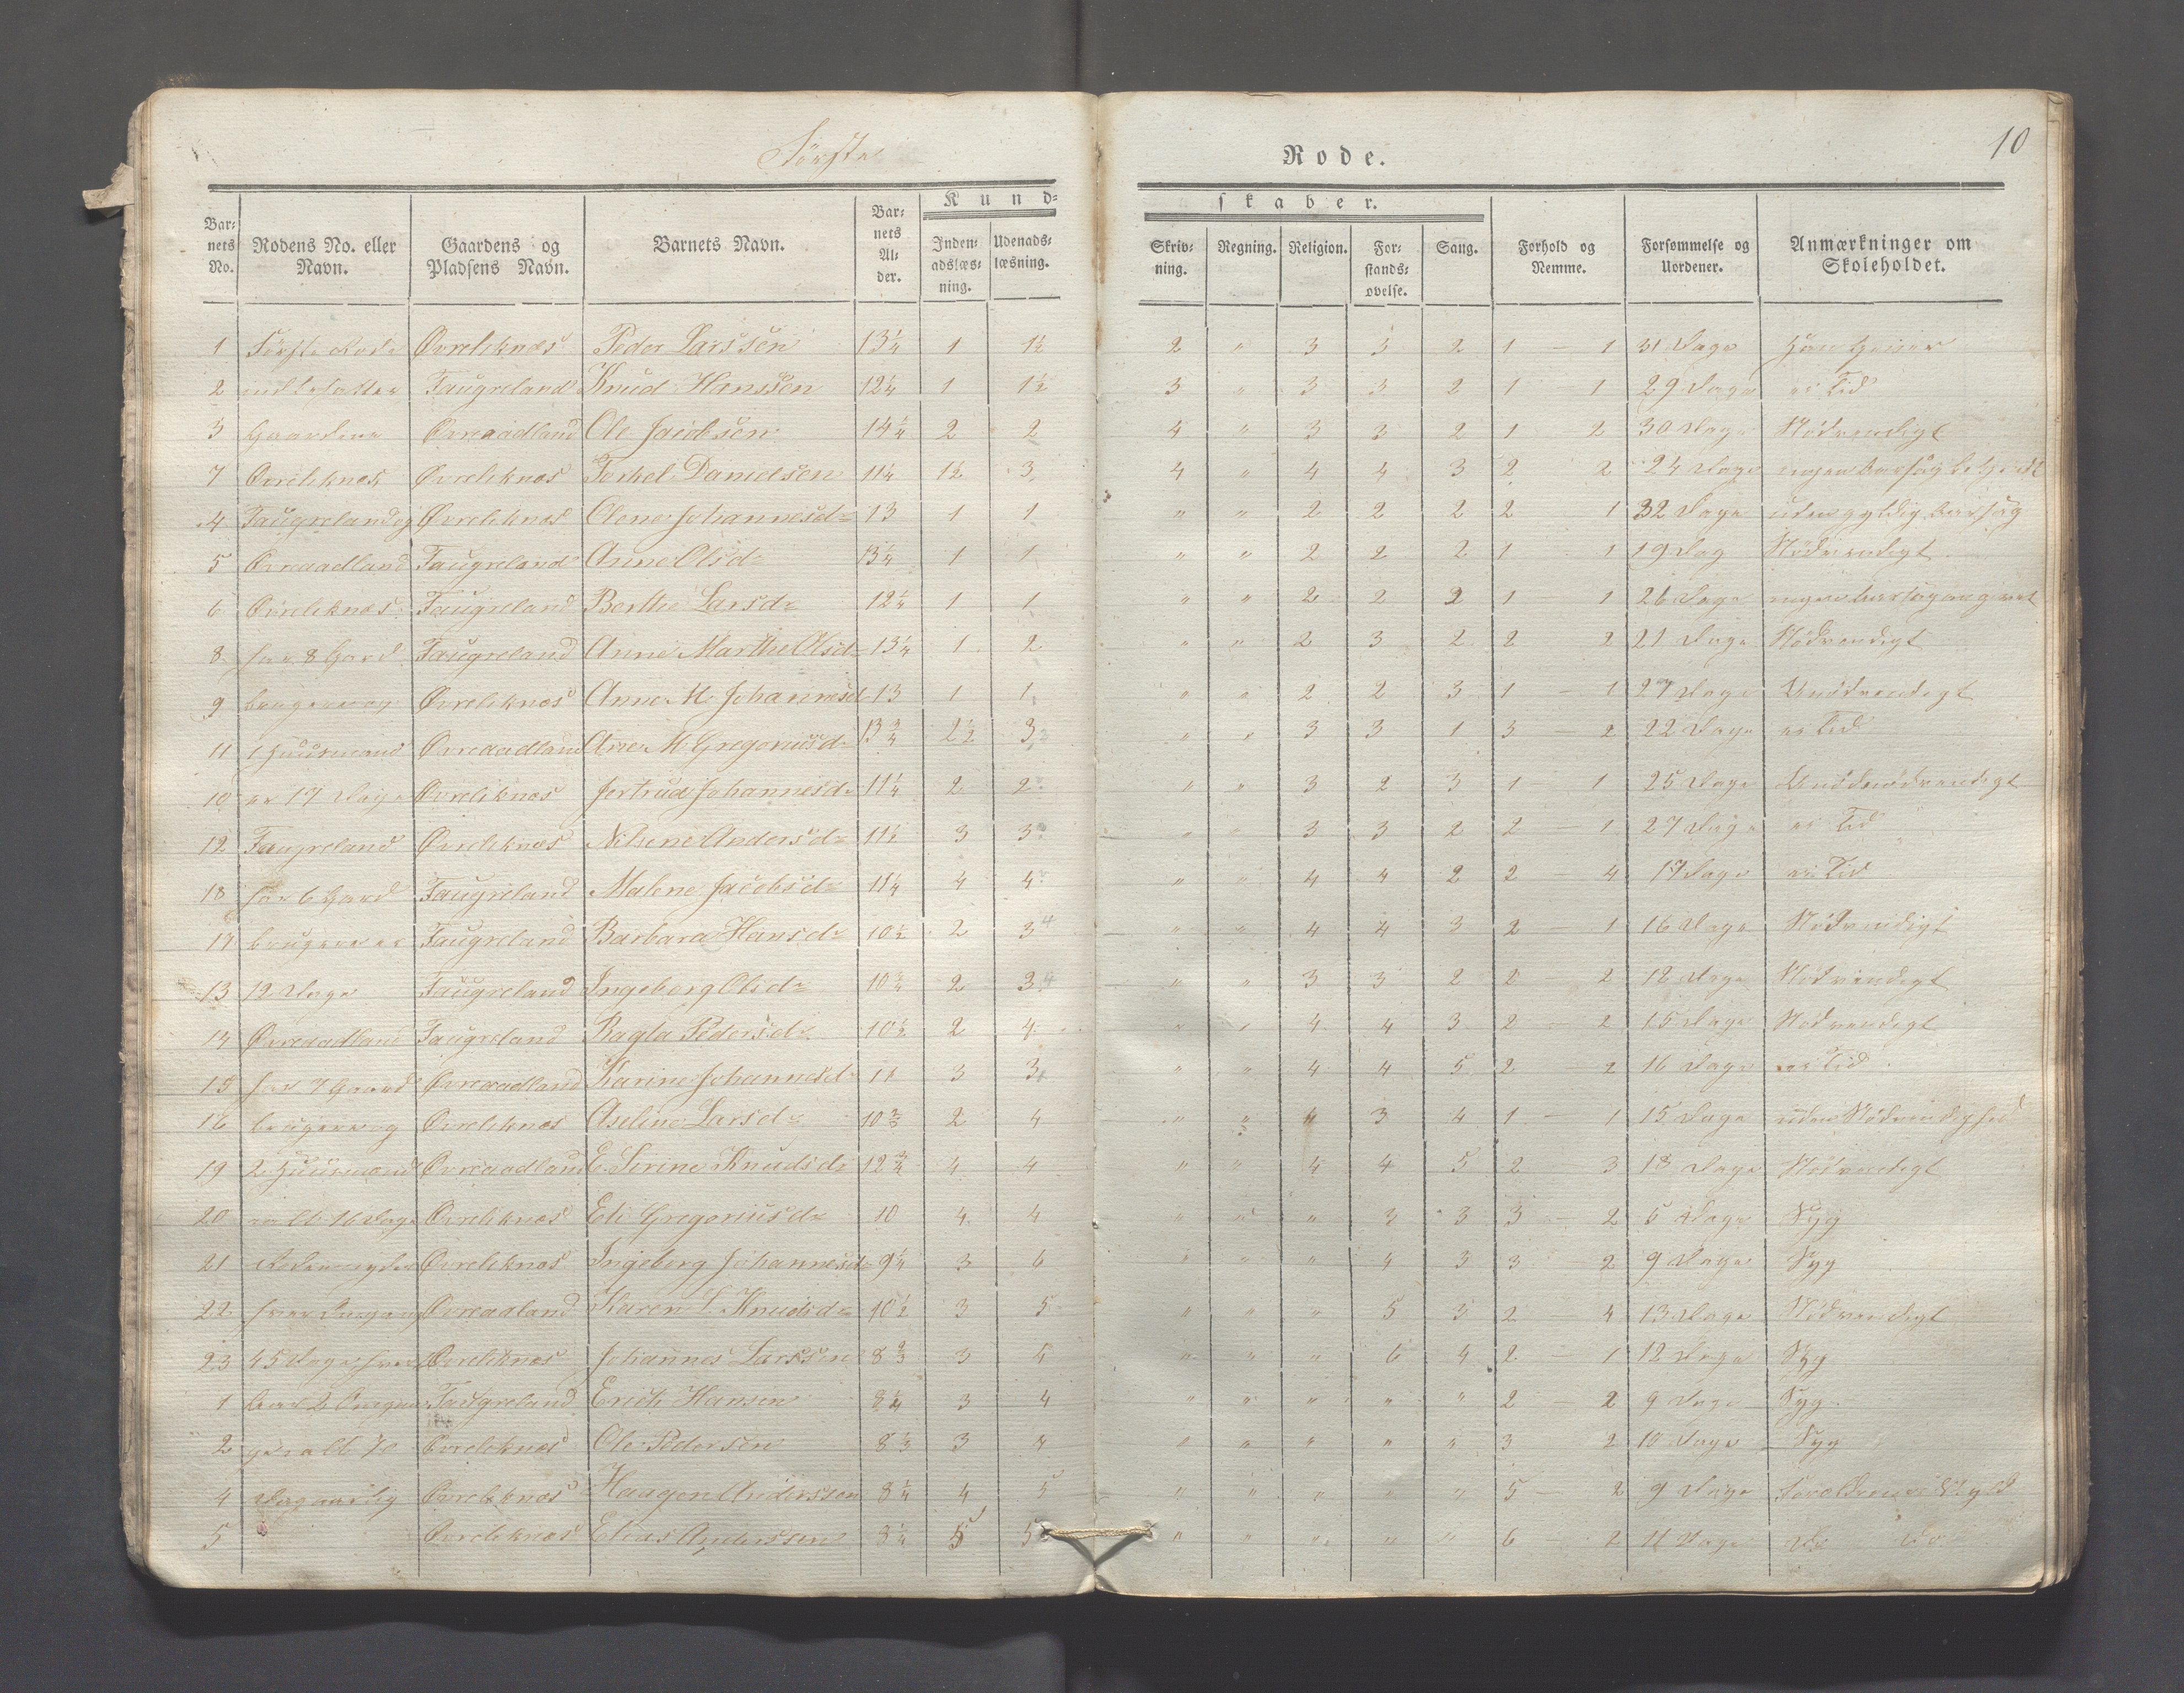 Første Rode.
10
Bar-nets No. | Rodens No. eller Navn. | Gaardens og Pladsens Navn. | Barnets Navn. | Bar-nets Al-der. | Kund-skaber. | Inden-adslæs-ning. | Udenads-læsning. | Skriv-ning. | Regning. | Religion. | For-stands-øvelse. | Sang. | Forhold og Nemme. | Forsømmelse og Uordener. | Anmærkninger om Skoleholdet.
1 Første Rode Øvreliknæs Peder Larssen 13 1/4 1 1 1/2 2 " 3 3 2 1 — 1 31 Dage
2 Faugreland Knud Hanssen 12 1/4 1 1 1/2 3 " 3 3 2 1 — 1 29 Dage ei Tid
3 Gaardene Øvreaadland Ole Jacobsen 14 1/4 2 2 4 " 3 3 2 1 — 2 30 Dage Nødvendigt
7 Øvreliknæs Øvreliknæs Torkel Danielsen 11 1/4 1 1/2 3 4 " 4 4 3 2 2 24 Dage
4 Faugreland og Øvreliknæs Olene Johannesd 13 1 1 " " 2 2 2 2 1 32 Dage uden gyldig
5 Øvreaadland Faugreland Anne Olsd 13 1/4 1 1 " " 2 2 2 1 1 19 Dag Nødvendigt
6 Øvreliknæs Faugreland Berthe Larsd 12 1/4 1 1 " " 2 2 2 1 — 1 26 Dage
8 har 8 Gaard Faugreland Anne Marthe Olsd 13 1/4 1 2 " " 2 3 2 2 2 21 Dage Nødvendigt
9 brugere og Øvreliknæs Anne M. Johannesd 13 1 1 " " 2 2 3 1 — 1 27 Dage Unødvendigt
11 1 Huusmand Øvreaadland Ane M. Gregoriusd 13 3/4 2 1/2 3 " " 3 3 1 3 — 2 22 Dage ei Tid
10 er 17 Dage Øvreliknæs Jertrud Johannesd 11 1/4 2 2 " " 3 2 3 1 — 1 25 Dage
12 Faugreland Øvreliknæs Nilsine Andersd 11 1/2 3 3 " " 3 3 2 2 — 1 27 Dage ei Tid
18 har 6 Gaard Faugreland Malene Jacobsd 11 1/4 4 4 " " 4 4 2 2 — 4 17 Dage ei Tid
17 brugere er Faugreland Barbara Hansd 10 1/2 2 3 " " 4 4 3 2 — 1 16 Dage Nødvendigt
13 12 Dage Faugreland Ingeborg Olsd 10 3/4 2 3 " " 3 3 2 2 — 2 18 Dage Nødvendigt
14 Øvreaadland Faugreland Ragla Pedersd 10 1/2 2 4 " " 4 4 3 2 — 2 15 Dage Nødvendigt
15 har 7 Gaard Øvreaadland Karine Johannesd 11 3 3 " " 4 4 5 2 — 2 16 Dage ei Tid
16 brugere og Øvreliknæs Aseline Larsd 10 2/3 2 4 " " 4 3 4 1 — 1 15 Dage uden Nødvendighed
19 2 Huusmænd Øvreaadland E. Serine Knudsd 12 3/4 4 4 " " 4 4 5 2 — 3 18 Dage Nødvendigt
20 16 Dage Øvreliknæs Eli Gregoriusd 10 4 4 " " " 3 3 3 — 2 6 Dage Syg
21 Øvreliknæs Ingeborg Johannesd 9 1/4 3 6 " " " 4 3 3 — 2 9 Dage Syg
22 hver Omgang Øvreaaland Karen S. Knudsd 10 1/2 3 5 " " " 5 3 2 — 4 13 Dage Nødvendigt
23 45 Dage Øvreliknæs Johannes Larssen 8 2/3 3 5 " " " 6 4 2 — 1 12 Dage Syg
1 Faugreland Erich Hansen 8 1/4 3 4 " " " " " 2 — 2 9 Dage Syg
2 Øvreliknæs Ole Pedersen 8 1/3 3 4 " " " " " 3 2 10 Dage Syg
4 Øvreliknæs Haagen Anderssen 8 1/4 4 5 " " " " " 5 — 2 9 Dage Forældrenes Skyld
5 Øvreliknæs Elias Anderssen 8 1/4 5 5 " " " " " 6 — 2 11 Dage Do Do